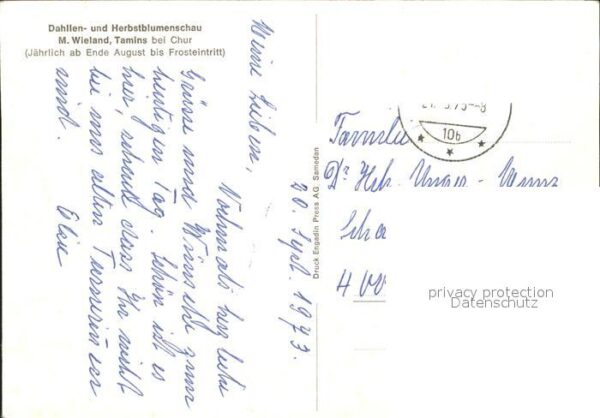 Dahlien- und Herbstblumenschau
M. Wieland, Tamins bei Chur
(Jährlich ab Ende August bis Frosteintritt)
20. Sept. 1973.
Meine Lieben,
Nochmals herzliche
Grüsse und Wünsche zum
heutigen Tag. Schön ist es
hier, schade dass Ihr nicht
bei uns alten Turnerinnen
sind.
Druck Engadin Press AG, Samedan
10b
Familie
Dr Hch.
400
privacy protection
Datenschutz